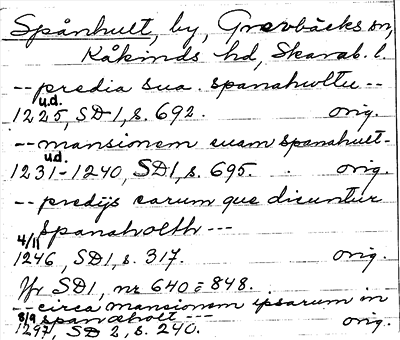 Spånhult, by, Grevbäcks sn,
Kåkinds hd, Skarab. l.
-- predia sua. spanahultu --
u.d.
1225, SD 1, s. 692. orig.
-- mansionem suam spanahult-
u.d.
1231-1240, SD1, s. 695. orig.
-- predijs earum que dicuntur
Spanaholth ---
4/11
1246, SD1, s. 317. orig.
Jfr SD1, nr 640 = 848.
-- circa mansionem ipsarum in
spanæholt ---
8/9
1297, SD 2, s. 240. orig.